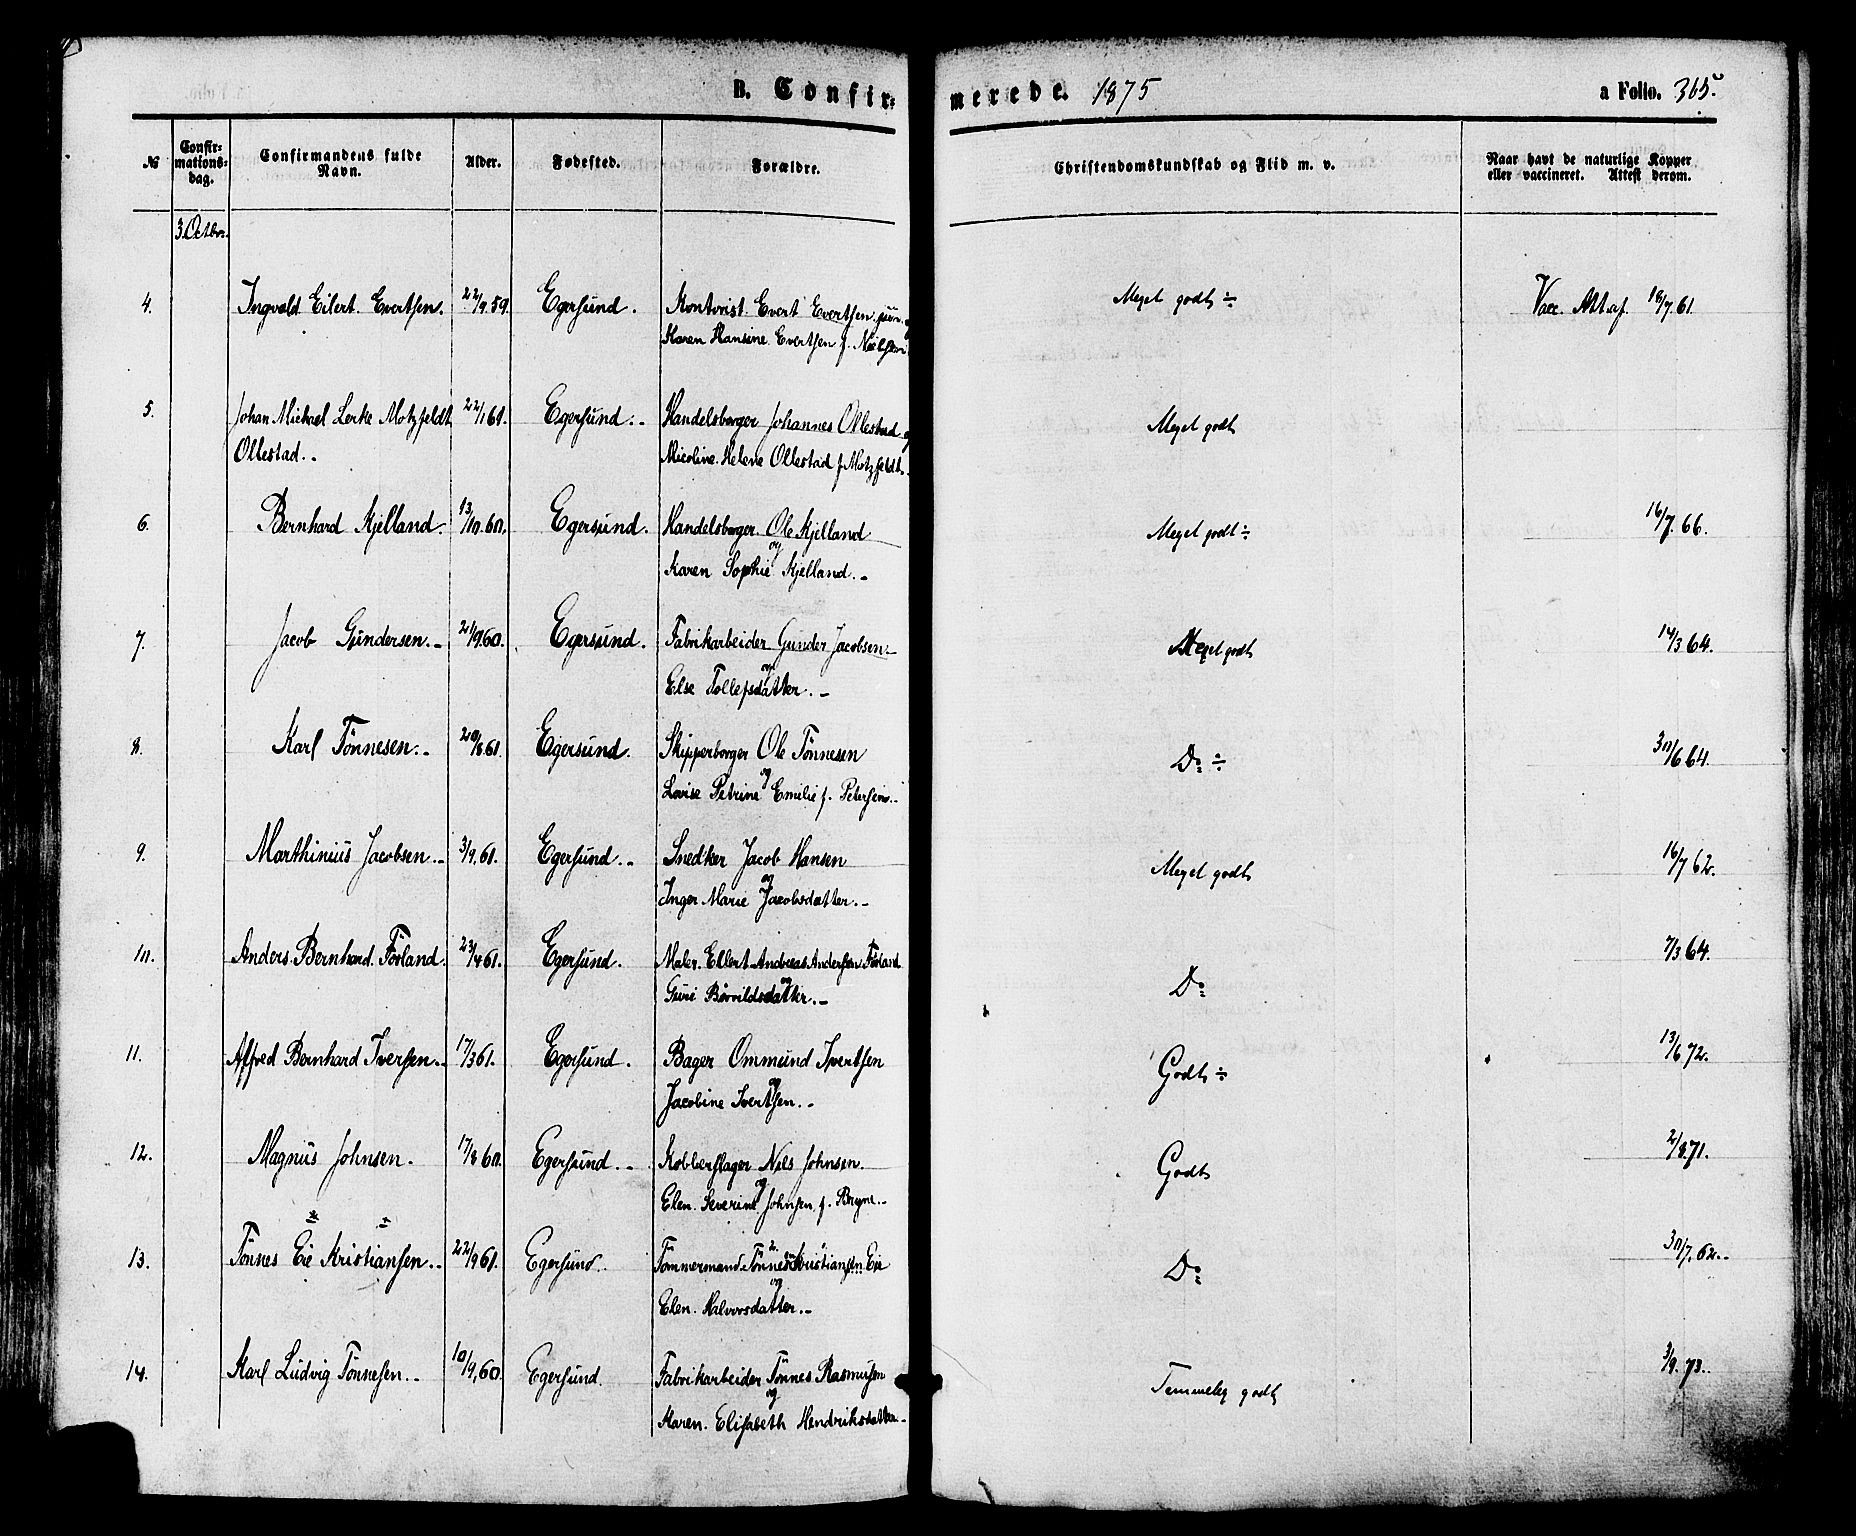 B. Confir-
merede. 1875
a Folio. 365.
№
Confir-
mations-
dag.
Confirmandens fulde
Navn.
Alder.
Fødested.
Forældre.
Christendomskundskab og Flid m. v.
Naar havt de naturlige Kopper
eller vaccineret. Attest derom.
3. Octbr.
4. Ingvald Eilert Evertsen. 22/9 59. Egersund. Evert Evertsen jun. og Meget godt ÷ Vacc. Att. af. 18/7. 61.
Karen Hansine Evertsen f. Nielsen
5. Johan Michael Lerke Motzfeldt 22/1 61. Egersund.. Handelsborger Johannes Ollestad og Meget godt
Ollestad.. Nicoline Helene Ollestad f. Motzfeldt.
6. Bernhard Kjelland. 13/10. 60. Egersund. Handelsborger Ole Kjelland Meget godt ÷ 16/7. 66.
og
Karen Sophie Kjelland..
7. Jacob Gundersen.. 21/9 60. Egersund. Fabrikarbeider Gunder Jacobsen Meget godt 14/3 64.
og
Else Tollefsdatter..
8. Karl Tønnesen.. 20/8 61. Egersund. Skipperborger Ole Tønnesen Do ÷ 30/6 64.
og
Lovise Petrine Emelie f. Petersen..
9. Marthinius Jacobsen.. 3/9. 61. Egersund.. Snedker Jacob Hansen Meget godt 16/7 62.
og
Inger Marie Jacobsdatter..
10. Anders Bernhard Førland. 23/4 61. Egersund. Maler Ellert Andreas Andersen Førland Do 7/3 64.
og
Guri Børvildsdatter..
11. Alfred Bernhard Iversen.. 17/3 61. Egersund. Bager Ommund Ivertsen Godt ÷ 13/6 72.
og
Jacobine Ivertsen..
12. Magnus Johnsen. 17/8 60. Egersund.. Kobberslager Nils Johnsen. Godt 2/8 71.
og
Elen Severine Johnsen f. Bryne..
13. Tønnes Eie Kristiansen.. 22/9 61. Egersund. Tømmermand Tønnes Kristiansen Eie Do 30/7. 62..
og
Elen Halvorsdatter..
14. Karl Ludvig Tønnesen.. 10/9, 60. Egersund. Fabrikarbeider Tønnes Rasmusen Temmelig godt 3/9. 73.
og
Karen Elisabeth Hendriksdatter..